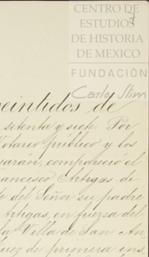 CENTRO DE
ESTUDIOS
DE HISTORIA
DE MEXICO
FUNDACIÓN
Carlos Slim
veintidos de
setenta y siete Por
público y los
compareció el
Francisco Artigas de
del Señor su padre
Artigas, en fuerza del
la Villa de San An
Juez de primera ins